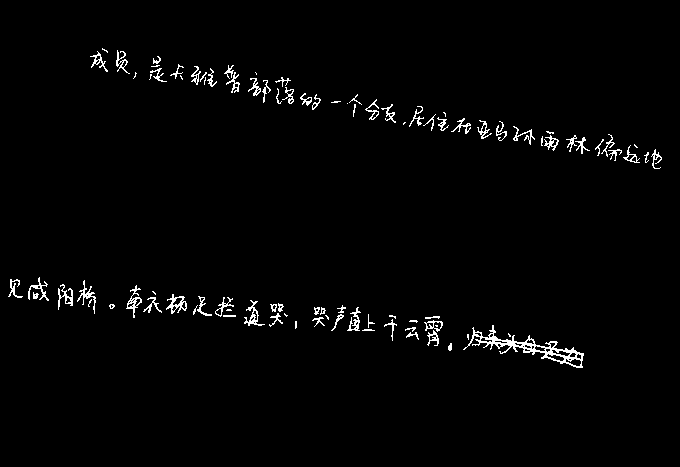 成员，是卡雅普部落的一个分支，居住在亚马孙雨林偏远地
见咸阳桥。牵衣顿足拦道哭，哭声直上干云霄。